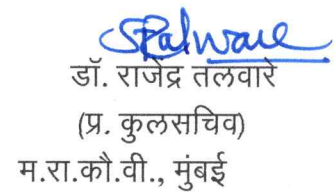 डॉ. राजेंद्र तलवारे
(प्र. कुलसचिव)
म.रा.कौ.वी., मुंबई